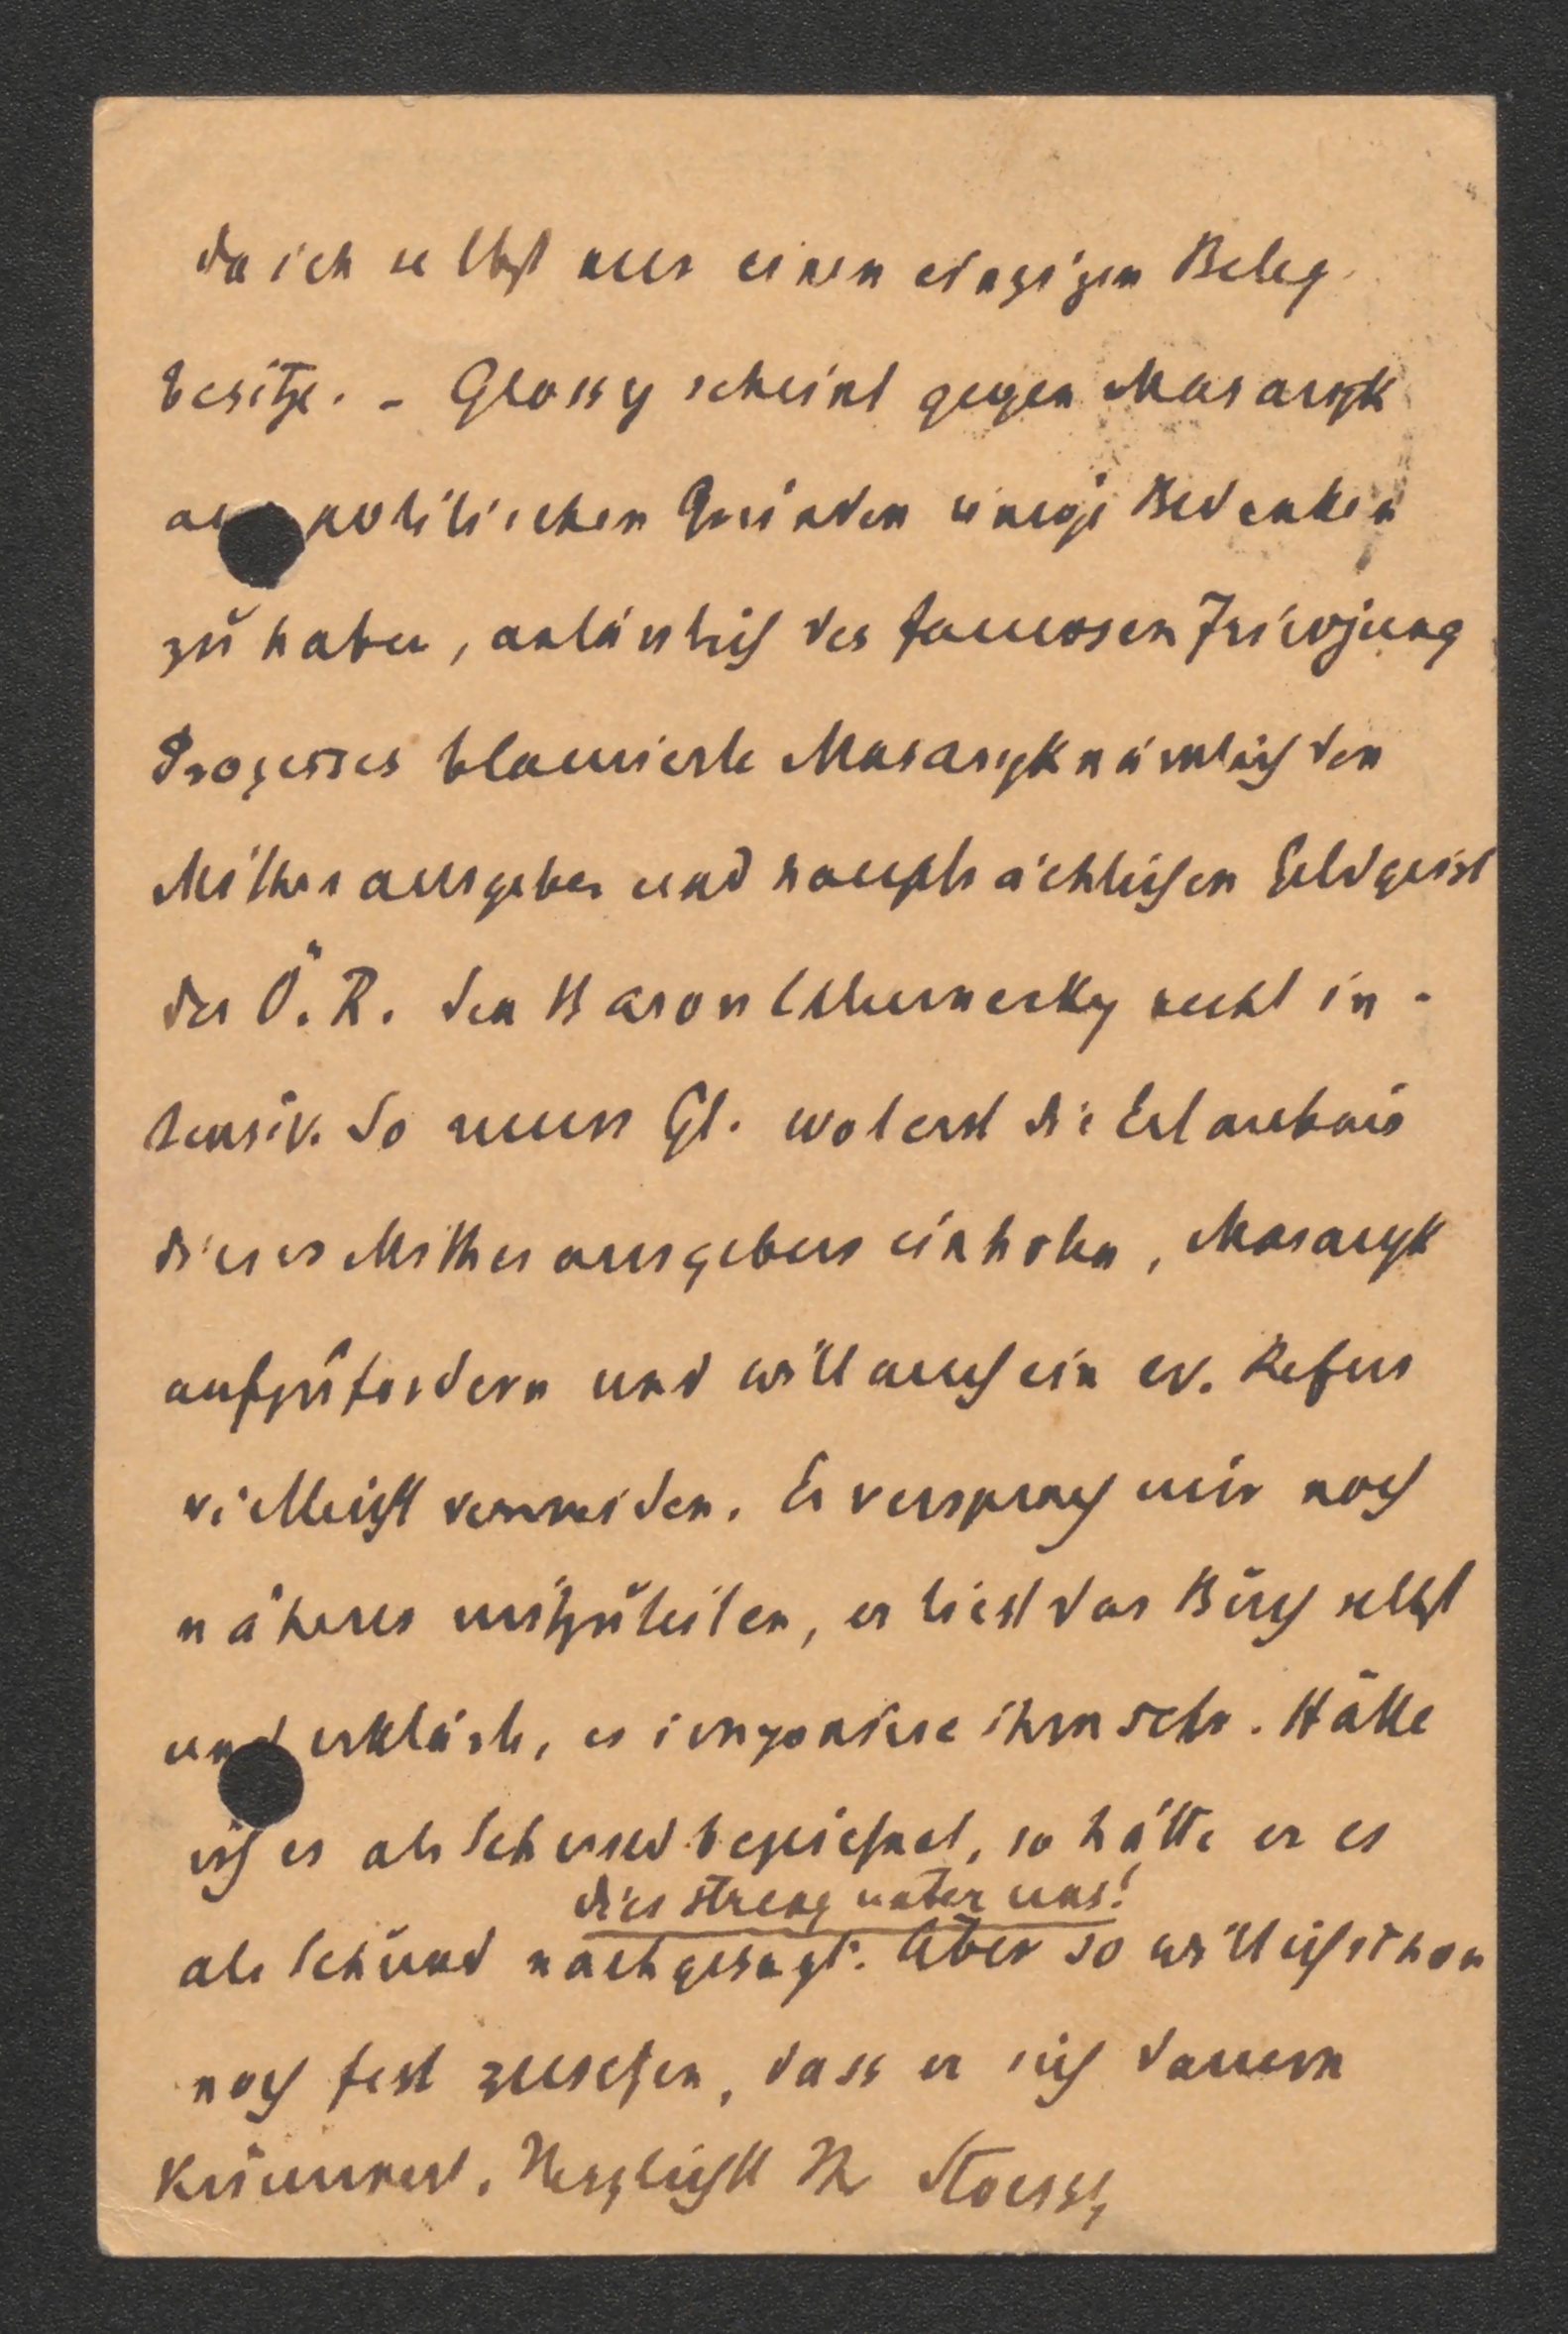 da ich selbst nur einen einzigen Beleg
besitze. – Glossy scheint gegen Masaryk
aus politischen Gründen einige Bedenken
zu haben, anlässlich des famosen Friedjung
Prozesses blamierte Masaryk nämlich den
Mitherausgeber und hauptsächlichen Geldgeist
der Ö. R. den Baron Chlumecky recht in-
tensiv. So muss Gl. wol erst die Erlaubnis
dieses Mitherausgebers einholen, Masaryk
aufzufordern und will auch ein ev. Refus
vielleicht vermeiden. Er versprach mir noch
näheres mitzuteilen, er liest das Buch selbst
und erklärte, es imponiere ihm sehr. Hätte
ich es als Schund bezeichnet, so hätte er es
dies streng unter uns!
als Schund nachgesagt. Aber so will ich schon
noch fest zusehen, dass er sich darum
kümmert. Herzlichst Ihr Stoessl